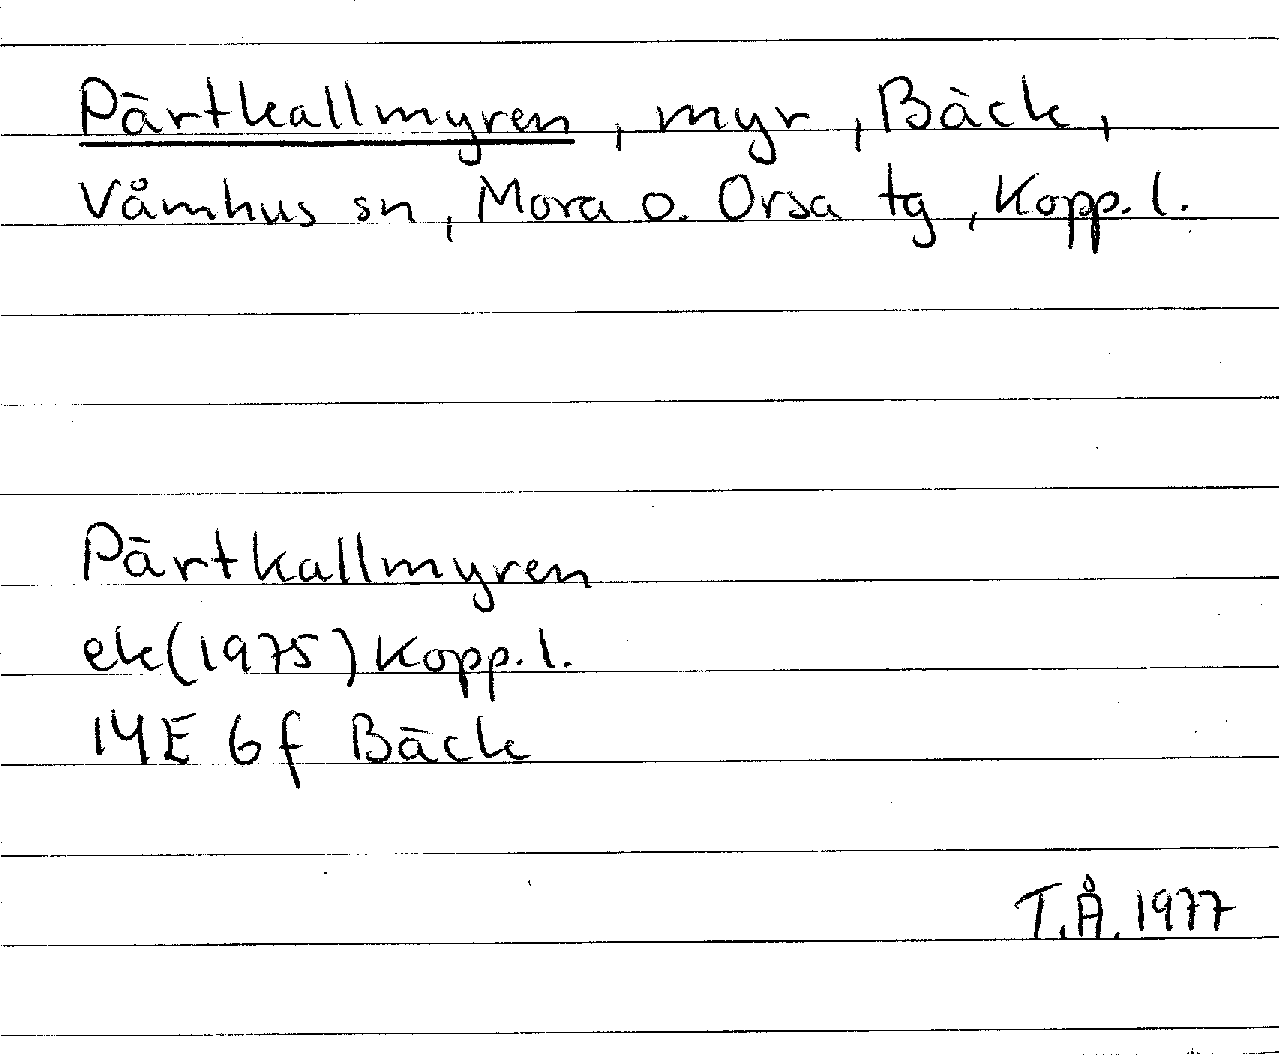 Pärtkallmyren, myr, Bäck,
Våmhus sn, Mora o. Orsa tg, Kopp. l.
Pärtkallmyren
ek(1975) Kopp. l.
14E 6f Bäck
T.Å. 1977